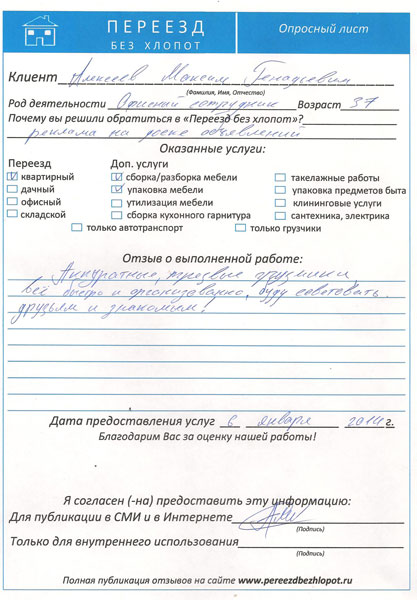 ПЕРЕЕЗД
БЕЗ ХЛОПОТ
Опросный лист
Клиент Алексеев Максим Генадьевич
(Фамилия, Имя, Отчество)
Род деятельности Офисный сотрудник Возраст 37
Почему вы решили обратиться в «Переезд без хлопот»?
реклама на доске объявлений
Оказанные услуги:
Переезд Доп. услуги
квартирный сборка/разборка мебели такелажные работы
дачный упаковка мебели упаковка предметов быта
офисный утилизация мебели клининговые услуги
складской сборка кухонного гарнитура сантехника, электрика
только автотранспорт только грузчики
Отзыв о выполненной работе:
Аккуратные, трезвые грузчики,
всё быстро и организованно, буду советовать
друзьям и знакомым!
Дата предоставления услуг 6 января 2014 г.
Благодарим Вас за оценку нашей работы!
Я согласен (-на) предоставить эту информацию:
Для публикации в СМИ и в Интернете
(Подпись)
Только для внутреннего использования
(Подпись)
Полная публикация отзывов на сайте www.pereezdbezhlopot.ru